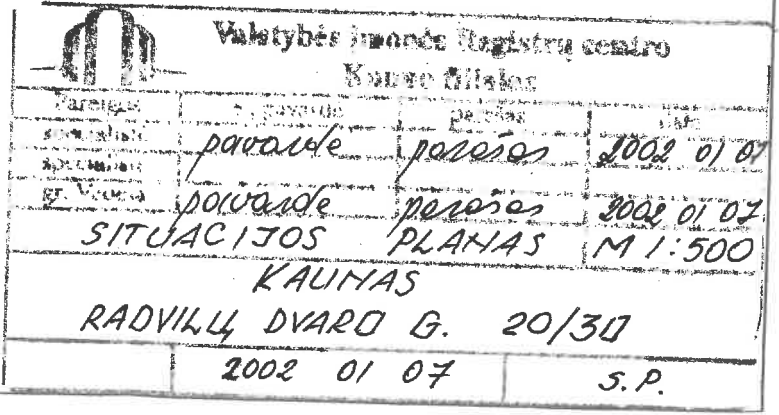 Valstybės įmonės Registrų centro
Kauno filialas
Pareigos v. pavardė parašas data
specialistė pavardė parašas 2002 01 07
specialistė
gr. Vedėja pavardė parašas 2002 01 07
SITUACIJOS PLANAS M 1:500
KAUNAS
RADVILŲ DVARO G. 20/30
2002 01 07 S.P.